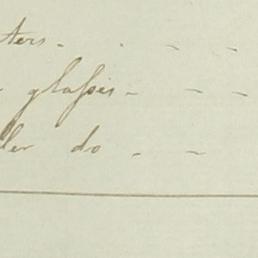 ters - - - -
glasses - - -
ler do - -